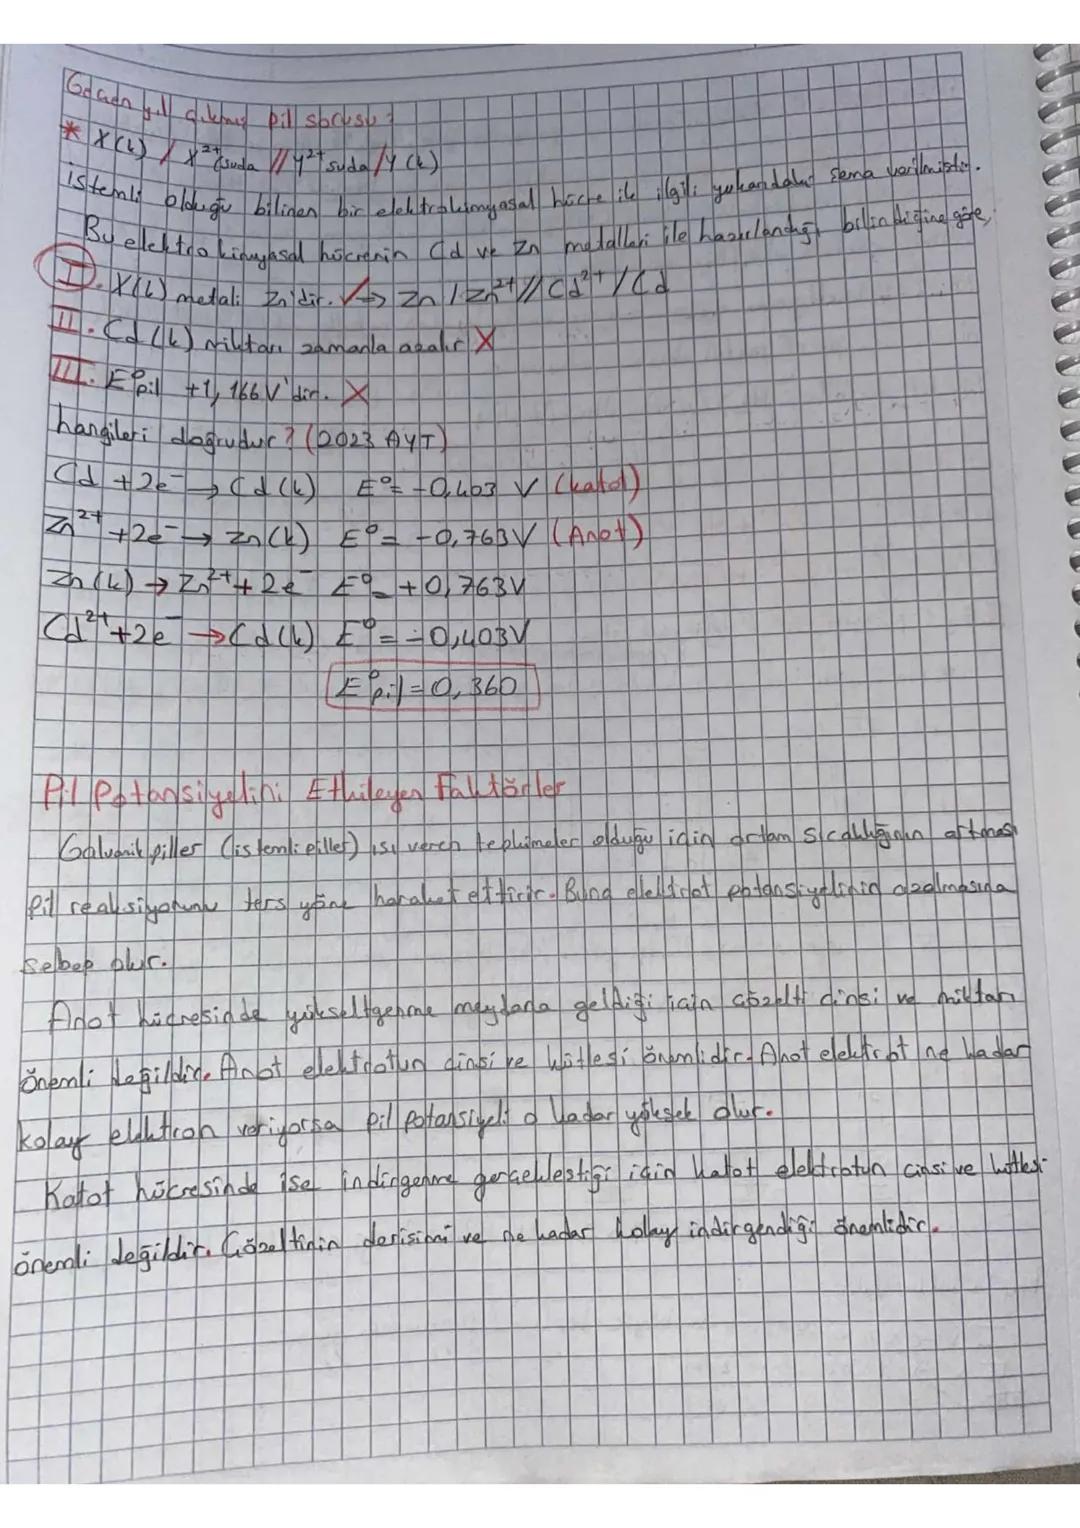 Geçen yıl çıkmış pil sorusu:
* X(k) / X²⁺suda // Y²⁺suda / Y(k)
istemli olduğu bilinen bir elektrokimyasal hücre ile ilgili yukarıdaki şema verilmiştir.
Bu elektrokimyasal hücrenin Cd ve Zn metalleri ile hazırlandığı bilindiğine göre,
I. X(k) metali Zn'dir. ✓→ Zn / Zn²⁺ // Cd²⁺ / Cd
II. Cd(k) miktarı zamanla azalır X
III. E°pil +1,166V'dir. X
hangileri doğrudur? (2023 AYT)
Cd +2e⁻ → Cd(k) E°= -0,403 V (katot)
Zn²⁺ +2e⁻ → Zn(k) E°= -0,763V (Anot)
Zn(k) → Zn²⁺ + 2e⁻ E°= +0,763V
Cd²⁺ +2e⁻ → Cd(k) E°= -0,403V
E°pil = 0,360
Pil Potansiyelini Etkileyen Faktörler
Galvanik piller (istemli piller) ısı veren tepkimeler olduğu için ortam sıcaklığının artması
pil reaksiyonunu ters yöne hareket ettirir. Buna elektrot potansiyelinin azalmasına
sebep olur.
Anot hücresinde yükseltgenme meydana geldiği için çözelti cinsi ve miktarı
önemli değildir. Anot elektrotun cinsi ve kütlesi önemlidir. Anot elektrot ne kadar
kolay elektron veriyorsa pil potansiyeli o kadar yüksek olur.
Katot hücresinde ise indirgenme gerçekleştiği için katot elektrotun cinsi ve kütlesi
önemli değildir. Çözeltinin derişimi ve ne kadar kolay indirgendiği önemlidir.